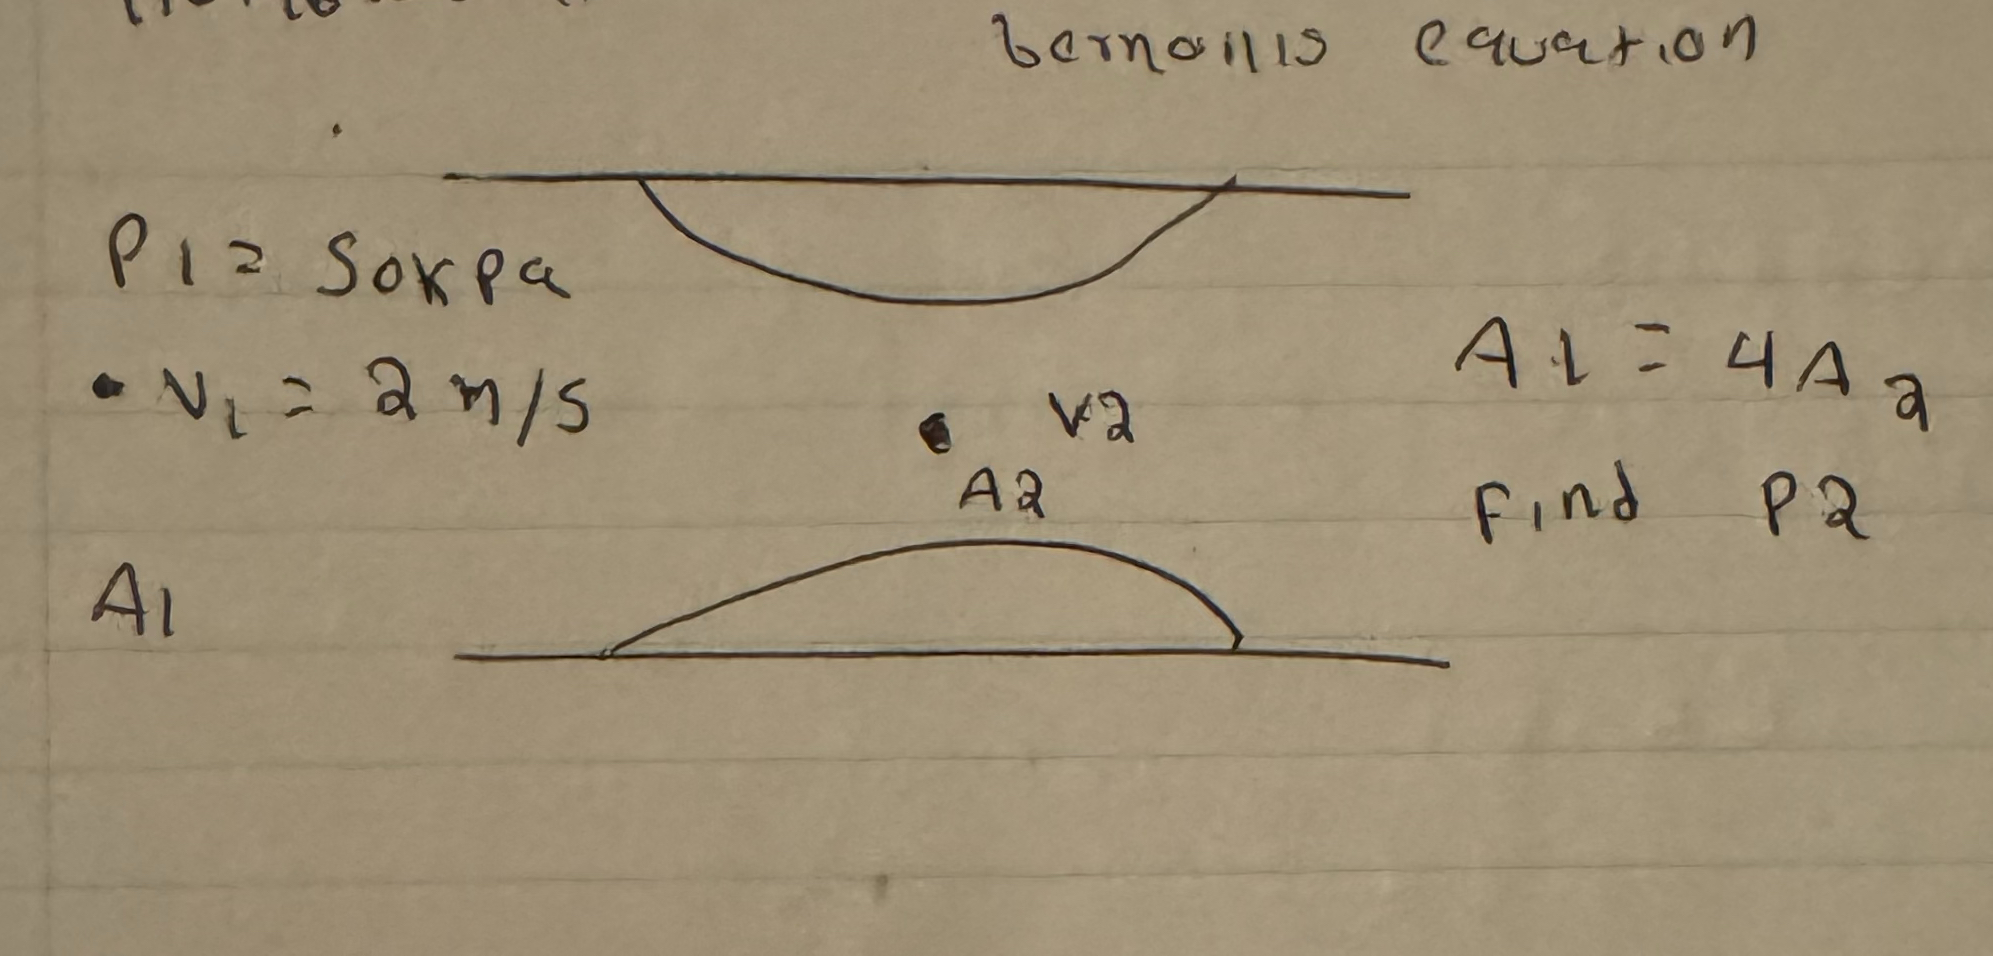 bernollis equation
P1 = 50KPa
• V1 = 2 m/s
A1 = 4A2
• V2
A2
Find P2
A1